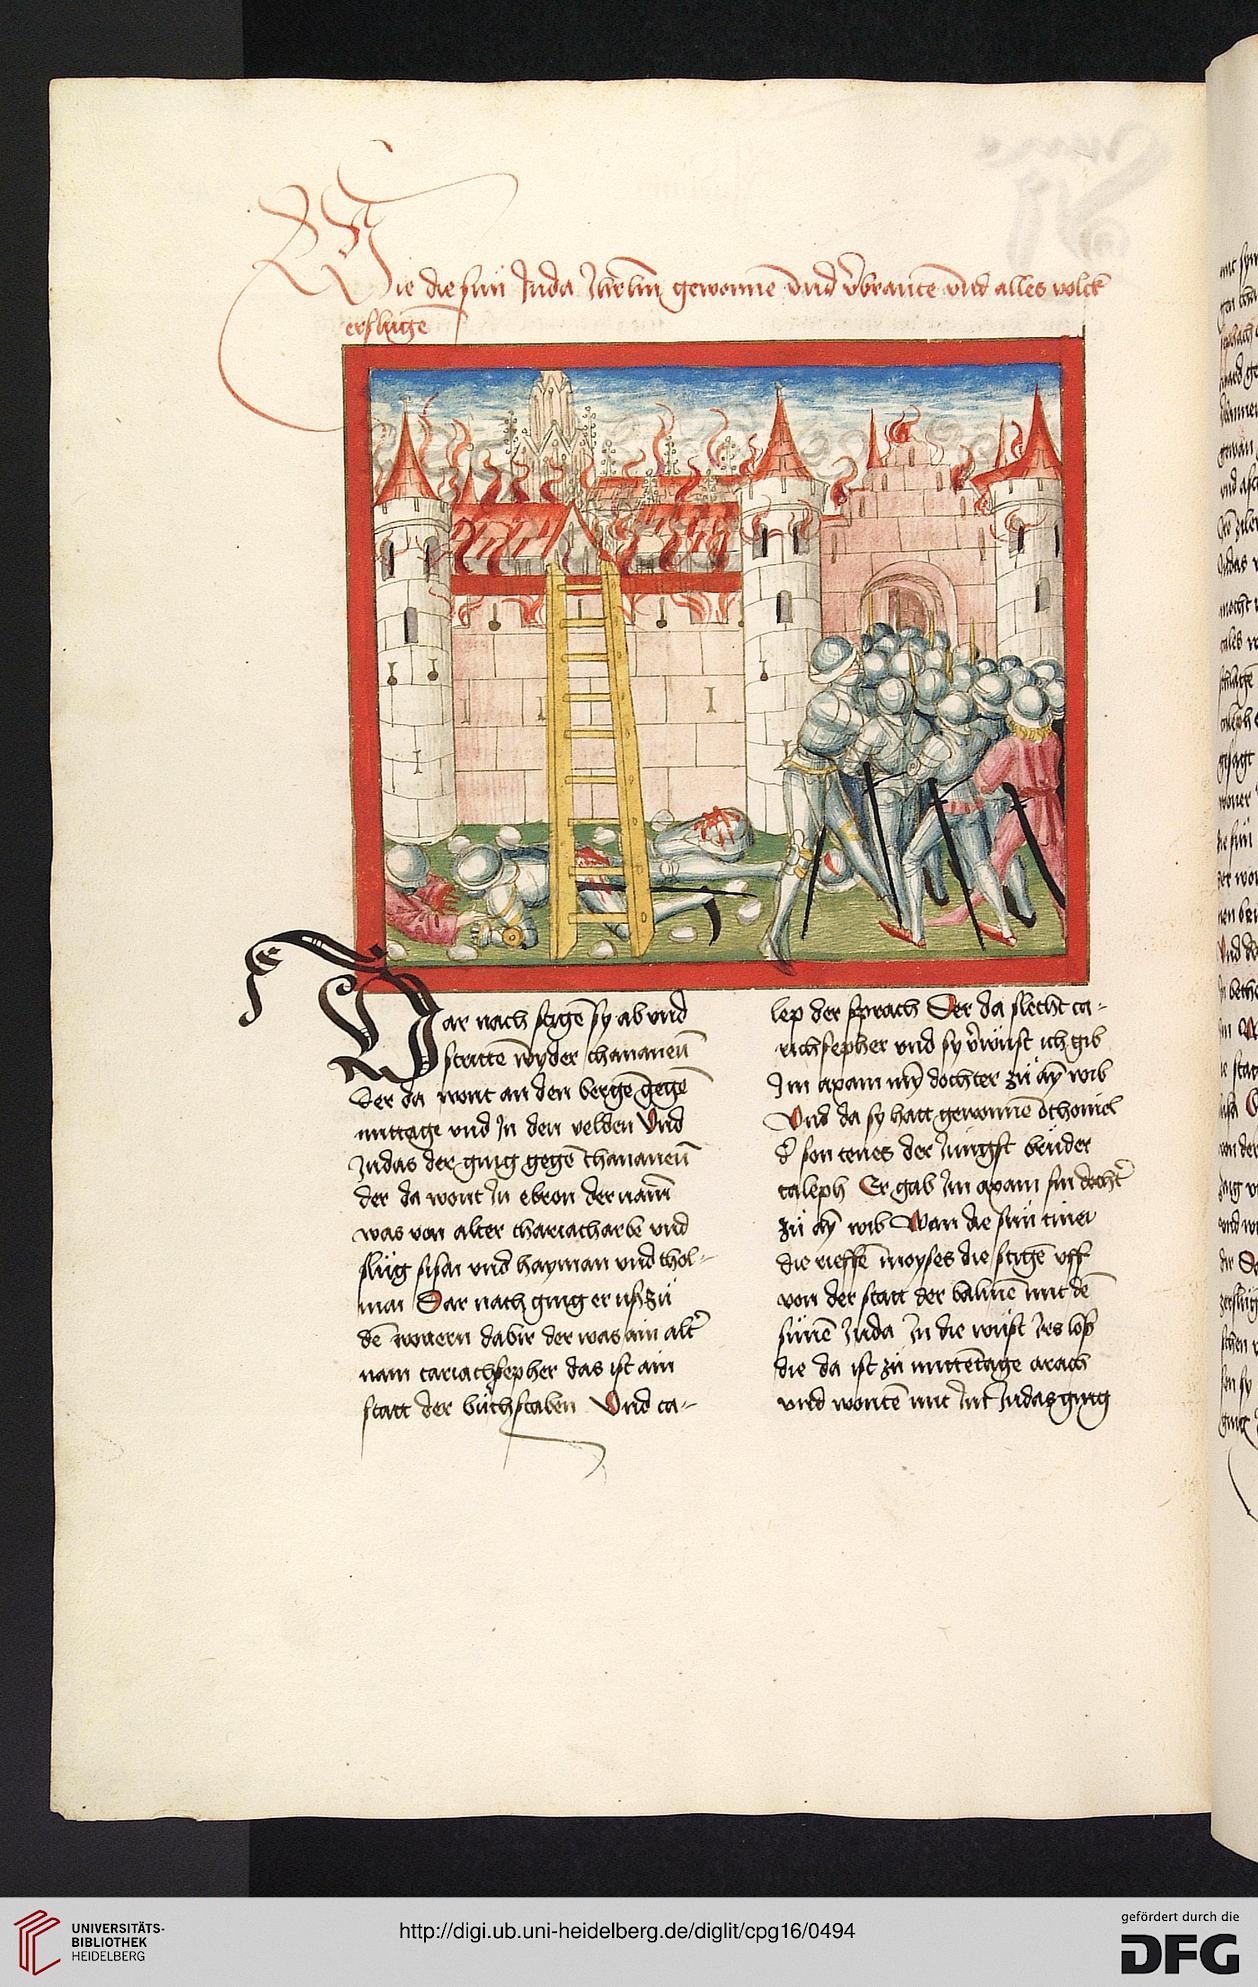 Wie die sün Juda Jhrlm̄ gewonnē vnd v̓brantē vnd alles volck
erslugē
Dar nach stigē sy ab vnd
strittē wyder chananeū
Der da wont an den bergē gegē
mittage vnd Jn den velden Vnd
Judas der ging gegē chananeū
der da wont Jn ebron der nam̄
was von alter chariatharbe vnd
slüg sisai vnd hayman vnd thol-
mai Dar nach ging er vsz zü
dē wonern dabir der was ain alt̓
nam cariachsepher das ist ain
statt der büchstaben Vnd ca-
lep der sprach Der da slecht ca-
richsepher vnd sy v̓wüst ich gib
Jm axam mȳ dochter zü aȳ wib
Vnd da sy hatt gewonnē Othoniel
d̓ son cenes der Jüngst brüder
caleph Er gab Jm axam sin docht̓
zü aȳ wib Wan die sün cinei
die rieffē moyses die stigē vff
von der statt der balmē mit dē
sünē Juda Jn die wüst Jrs losz
die da ist zü mittētage arach
vnd wontē mit Jm Judas ging
UNIVERSITÄTS-
BIBLIOTHEK
HEIDELBERG
http://digi.ub.uni-heidelberg.de/diglit/cpg16/0494
gefördert durch die
DFG